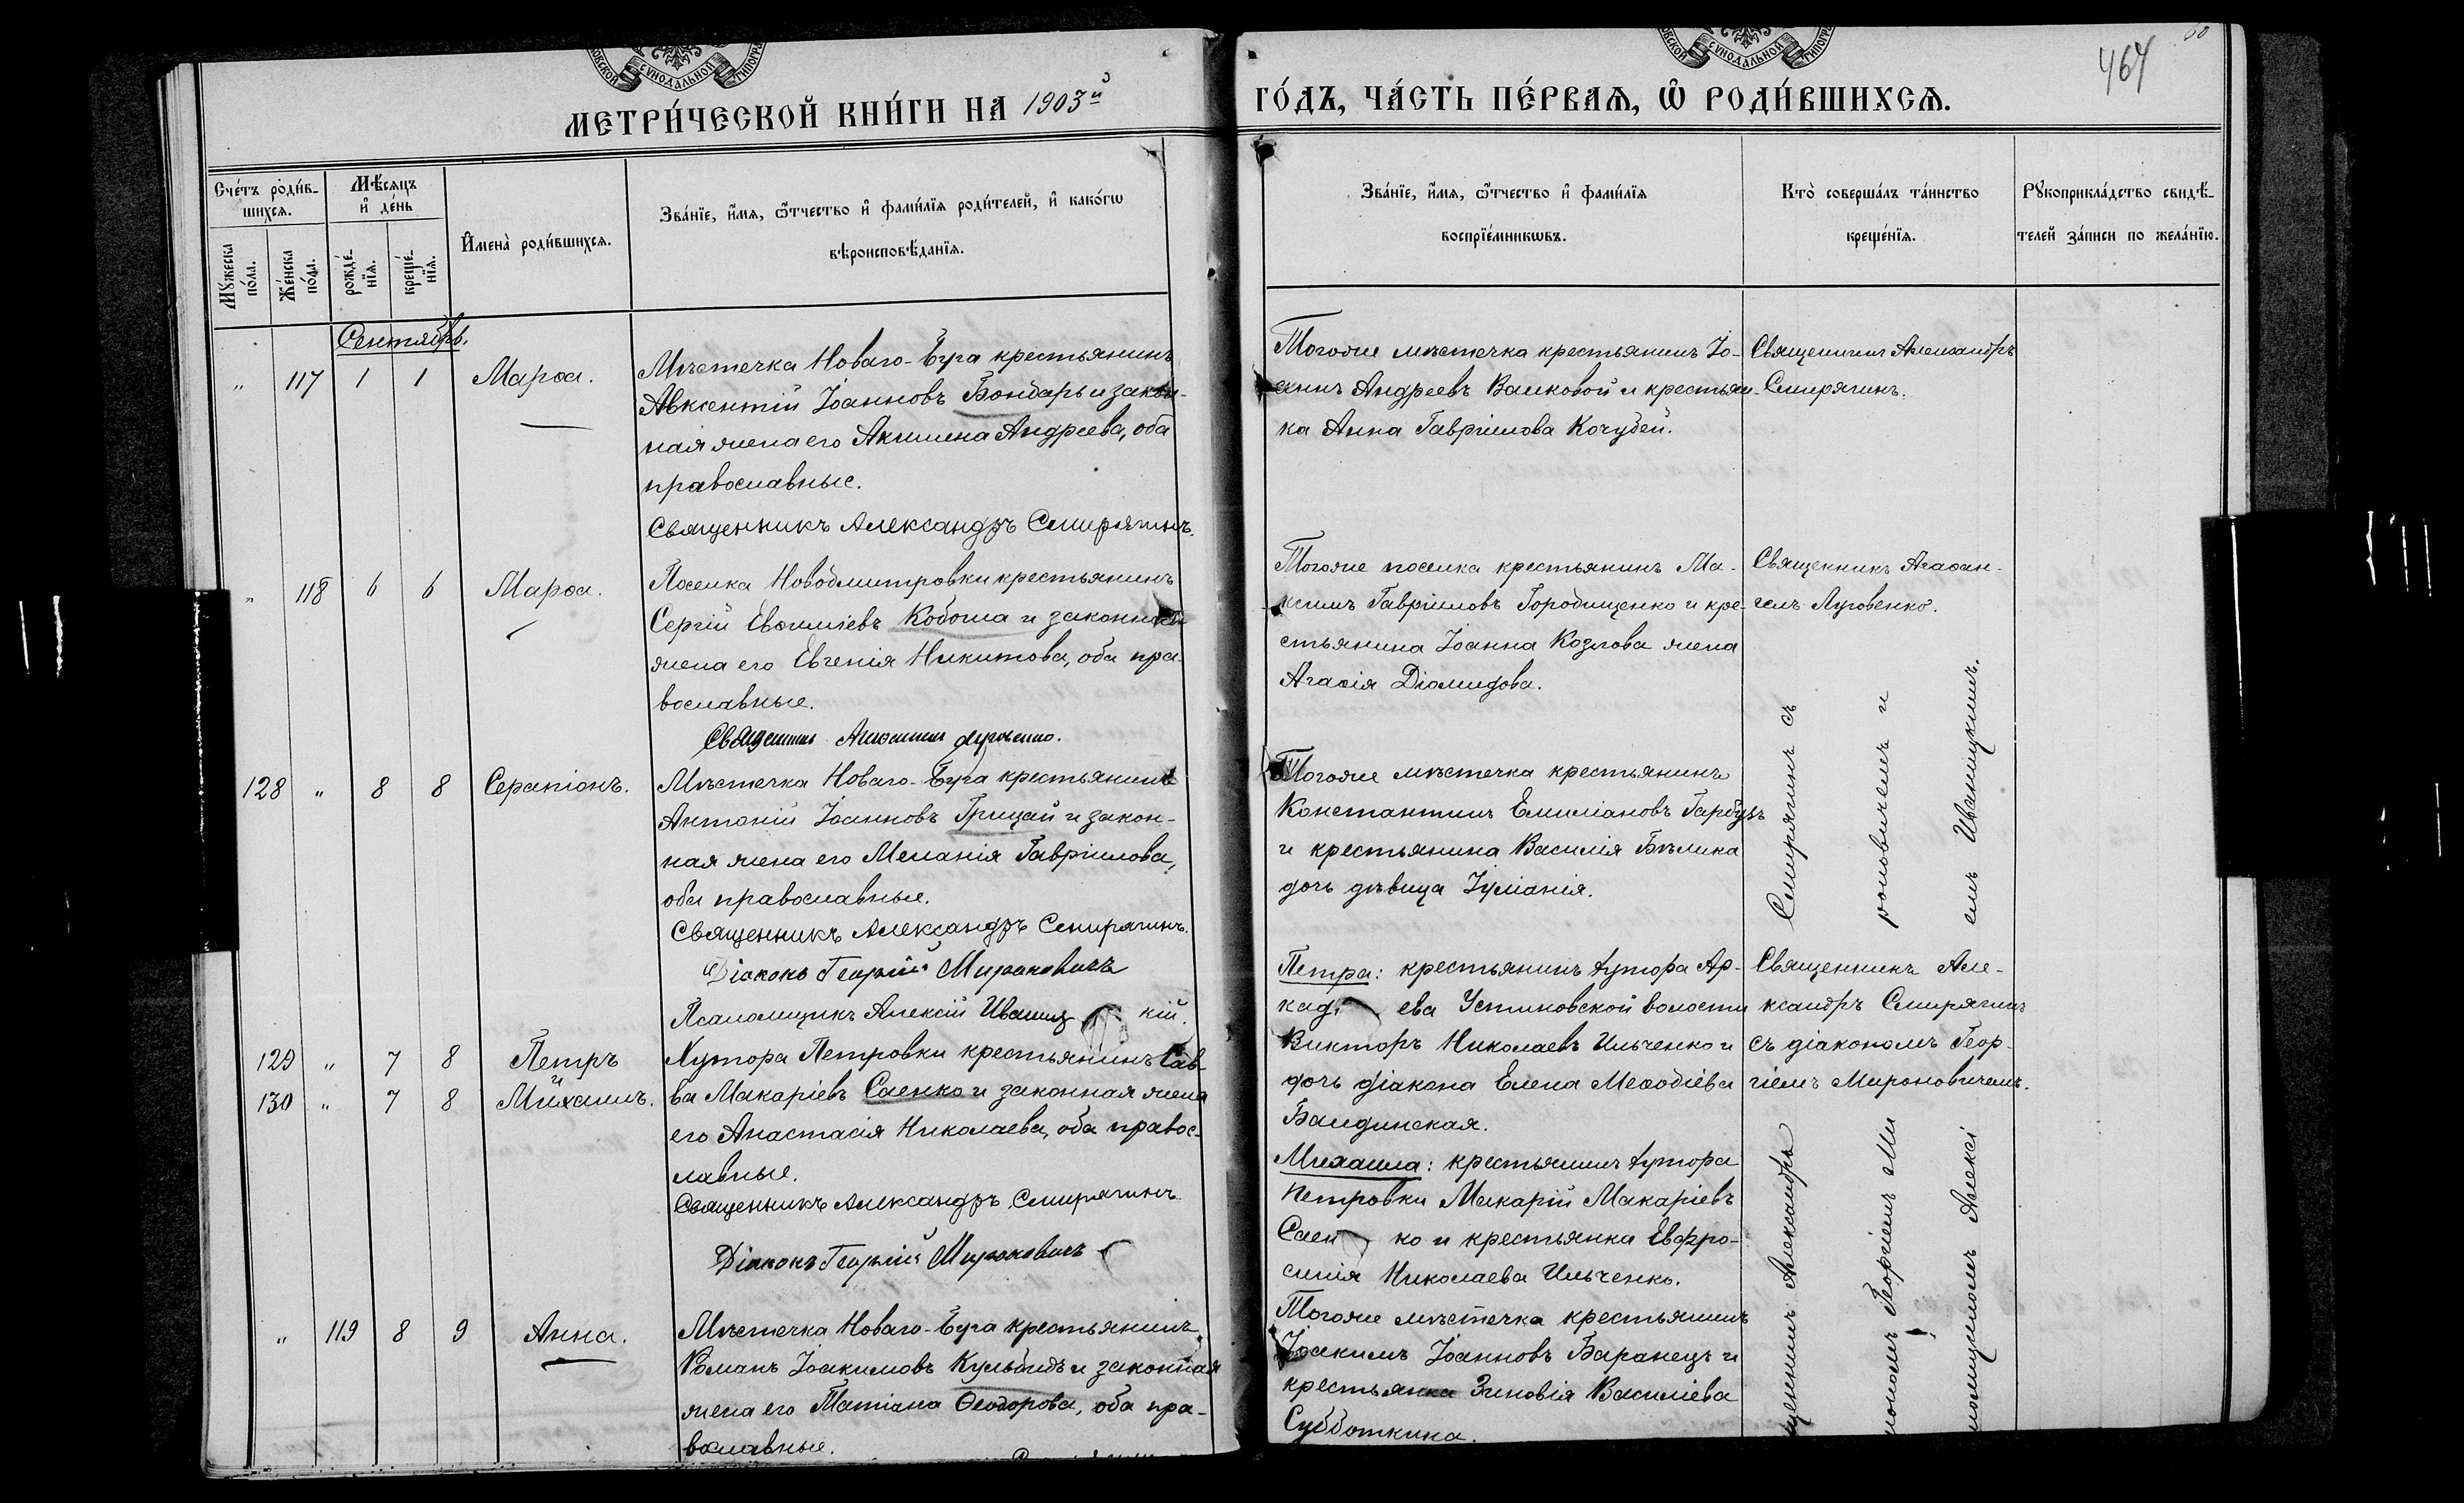 МЕТРИ́ЧЕСКОЙ КНИ́ГИ НА 1903й
ГО́ДЪ, ЧА́СТЬ ПЕ́РВАѦ, Ѡ҆ РОДИ́ВШИХСѦ.
464
Сче́тъ роди́в-
шихсѧ.
Мѣ́сѧцъ
и҆ де́нь
Мꙋ́жеска
по́ла.
Же́нска
по́ла.
рожде́-
нїѧ.
креще́-
нїѧ.
И҆мена̀ роди́вшихсѧ.
Зва́нїе, и҆́мѧ, ѻ҆́тчество и҆ фами́лїѧ роди́телей, и҆ како́гѡ
вѣроисповѣ́данїѧ.
Зва́нїе, и҆́мѧ, ѻ҆́тчество и҆ фами́лїѧ
воспрїе́мникѡвъ.
Кто̀ соверша́лъ та́инство
креще́нїѧ.
Рꙋкоприкла́дство свидѣ́-
телей за́писи по жела́нїю.
Сентябрь.
„ 117 1 1 Марѳа.
Мѣстечка Новаго-Буга крестьянинъ
Авксентій Іоанновъ Бондарь и закон-
ная жена его Акилина Андреева, оба
православные.
Священникъ Александръ Смирягинъ.
Тогоже мѣстечка крестьянинъ Іо-
аннъ Андреевъ Валковой и крестьян-
ка Анна Гавріилова Кочубей.
Священникъ Александръ
Смирягинъ.
„ 118 6 6 Марѳа.
Поселка Новодмитровки крестьянинъ
Сергій Евѳиміевъ Кобоша и законная
жена его Евгенія Никитова, оба пра-
вославные.
Священникъ Агаѳангелъ Луговенко.
Тогоже поселка крестьянинъ Ма-
ксимъ Гавріиловъ Городищенко и кре-
стьянина Іоанна Козлова жена
Агаѳія Діомидова.
Священникъ Агаѳан-
гелъ Луговенко.
128 „ 8 8 Серапіонъ.
Мѣстечка Новаго-Буга крестьянинъ
Антоній Іоанновъ Грицай и закон-
ная жена его Меланія Гавріилова,
оба православные.
Священникъ Александръ Смирягинъ.
Діаконъ Георгій Мироновичъ
Псаломщикъ Алексій Иваницкій.
Тогоже мѣстечка крестьянинъ
Константинъ Емиліановъ Гарбузъ
и крестьянина Василія Бѣлика
дочь дѣвица Іуліанія.
Священникъ Александръ Смирягинъ съ
діакономъ Георгіемъ Ми роновичемъ и
псаломщикомъ Алексі емъ Иваницкимъ.
129 „ 7 8 Петръ
и
130 „ 7 8 Михаилъ.
Хутора Петровки крестьянинъ Сав-
ва Макаріевъ Саенко и законная жена
его Анастасія Николаева, оба правос-
лавные.
Священникъ Александръ Смирягинъ
Діаконъ Георгій Мироновичъ
Петра: крестьянинъ хутора Ар-
кадіева Устиновской волости
Викторъ Николаевъ Ильченко и
дочь діакона Елена Меѳодіева
Бандинская.
Михаила: крестьянинъ хутора
Петровки Макарій Макаріевъ
Саенко и крестьянка Евфро-
синія Николаева Ильченко.
Священникъ Але-
ксандръ Смирягинъ
съ діакономъ Геор-
гіемъ Мироновичемъ.
„ 119 8 9 Анна.
Мѣстечка Новаго-Буга крестьянинъ
Романъ Іоакимовъ Кульбидъ и законная
жена его Татіана Ѳеодорова, оба пра-
вославные.
Тогоже мѣстечка крестьянинъ
Іоакимъ Іоанновъ Баранецъ и
крестьянка Зиновія Василіева
Субботкина.